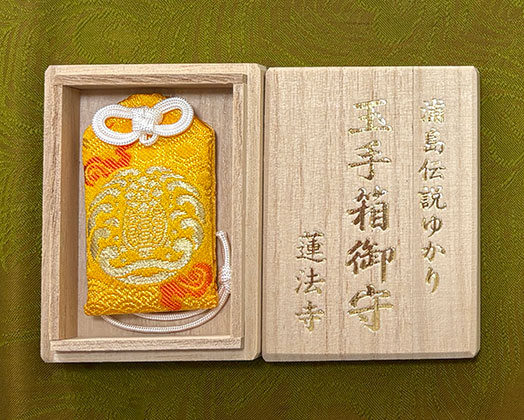 浦島伝説ゆかり
玉手箱御守
蓮法寺